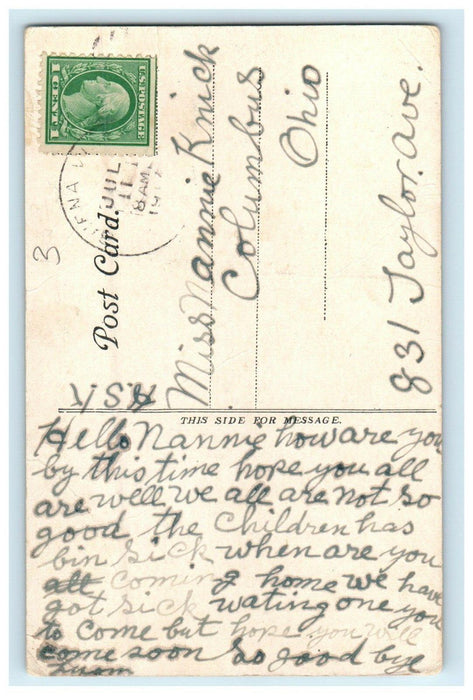 U.S. POSTAGE
1 CENT 1
JUL
11
8 AM
191
3
Post Card.
Miss Nannie Knick
Columbus
Ohio
831 Taylor Ave.
THIS SIDE FOR MESSAGE.
Hello Nannie how are you
by this time hope you all
are well we all are not so
good the Children has
bin sick when are you
all coming home we have
got sick wating one you
to come but hope you will
come soon so good bye